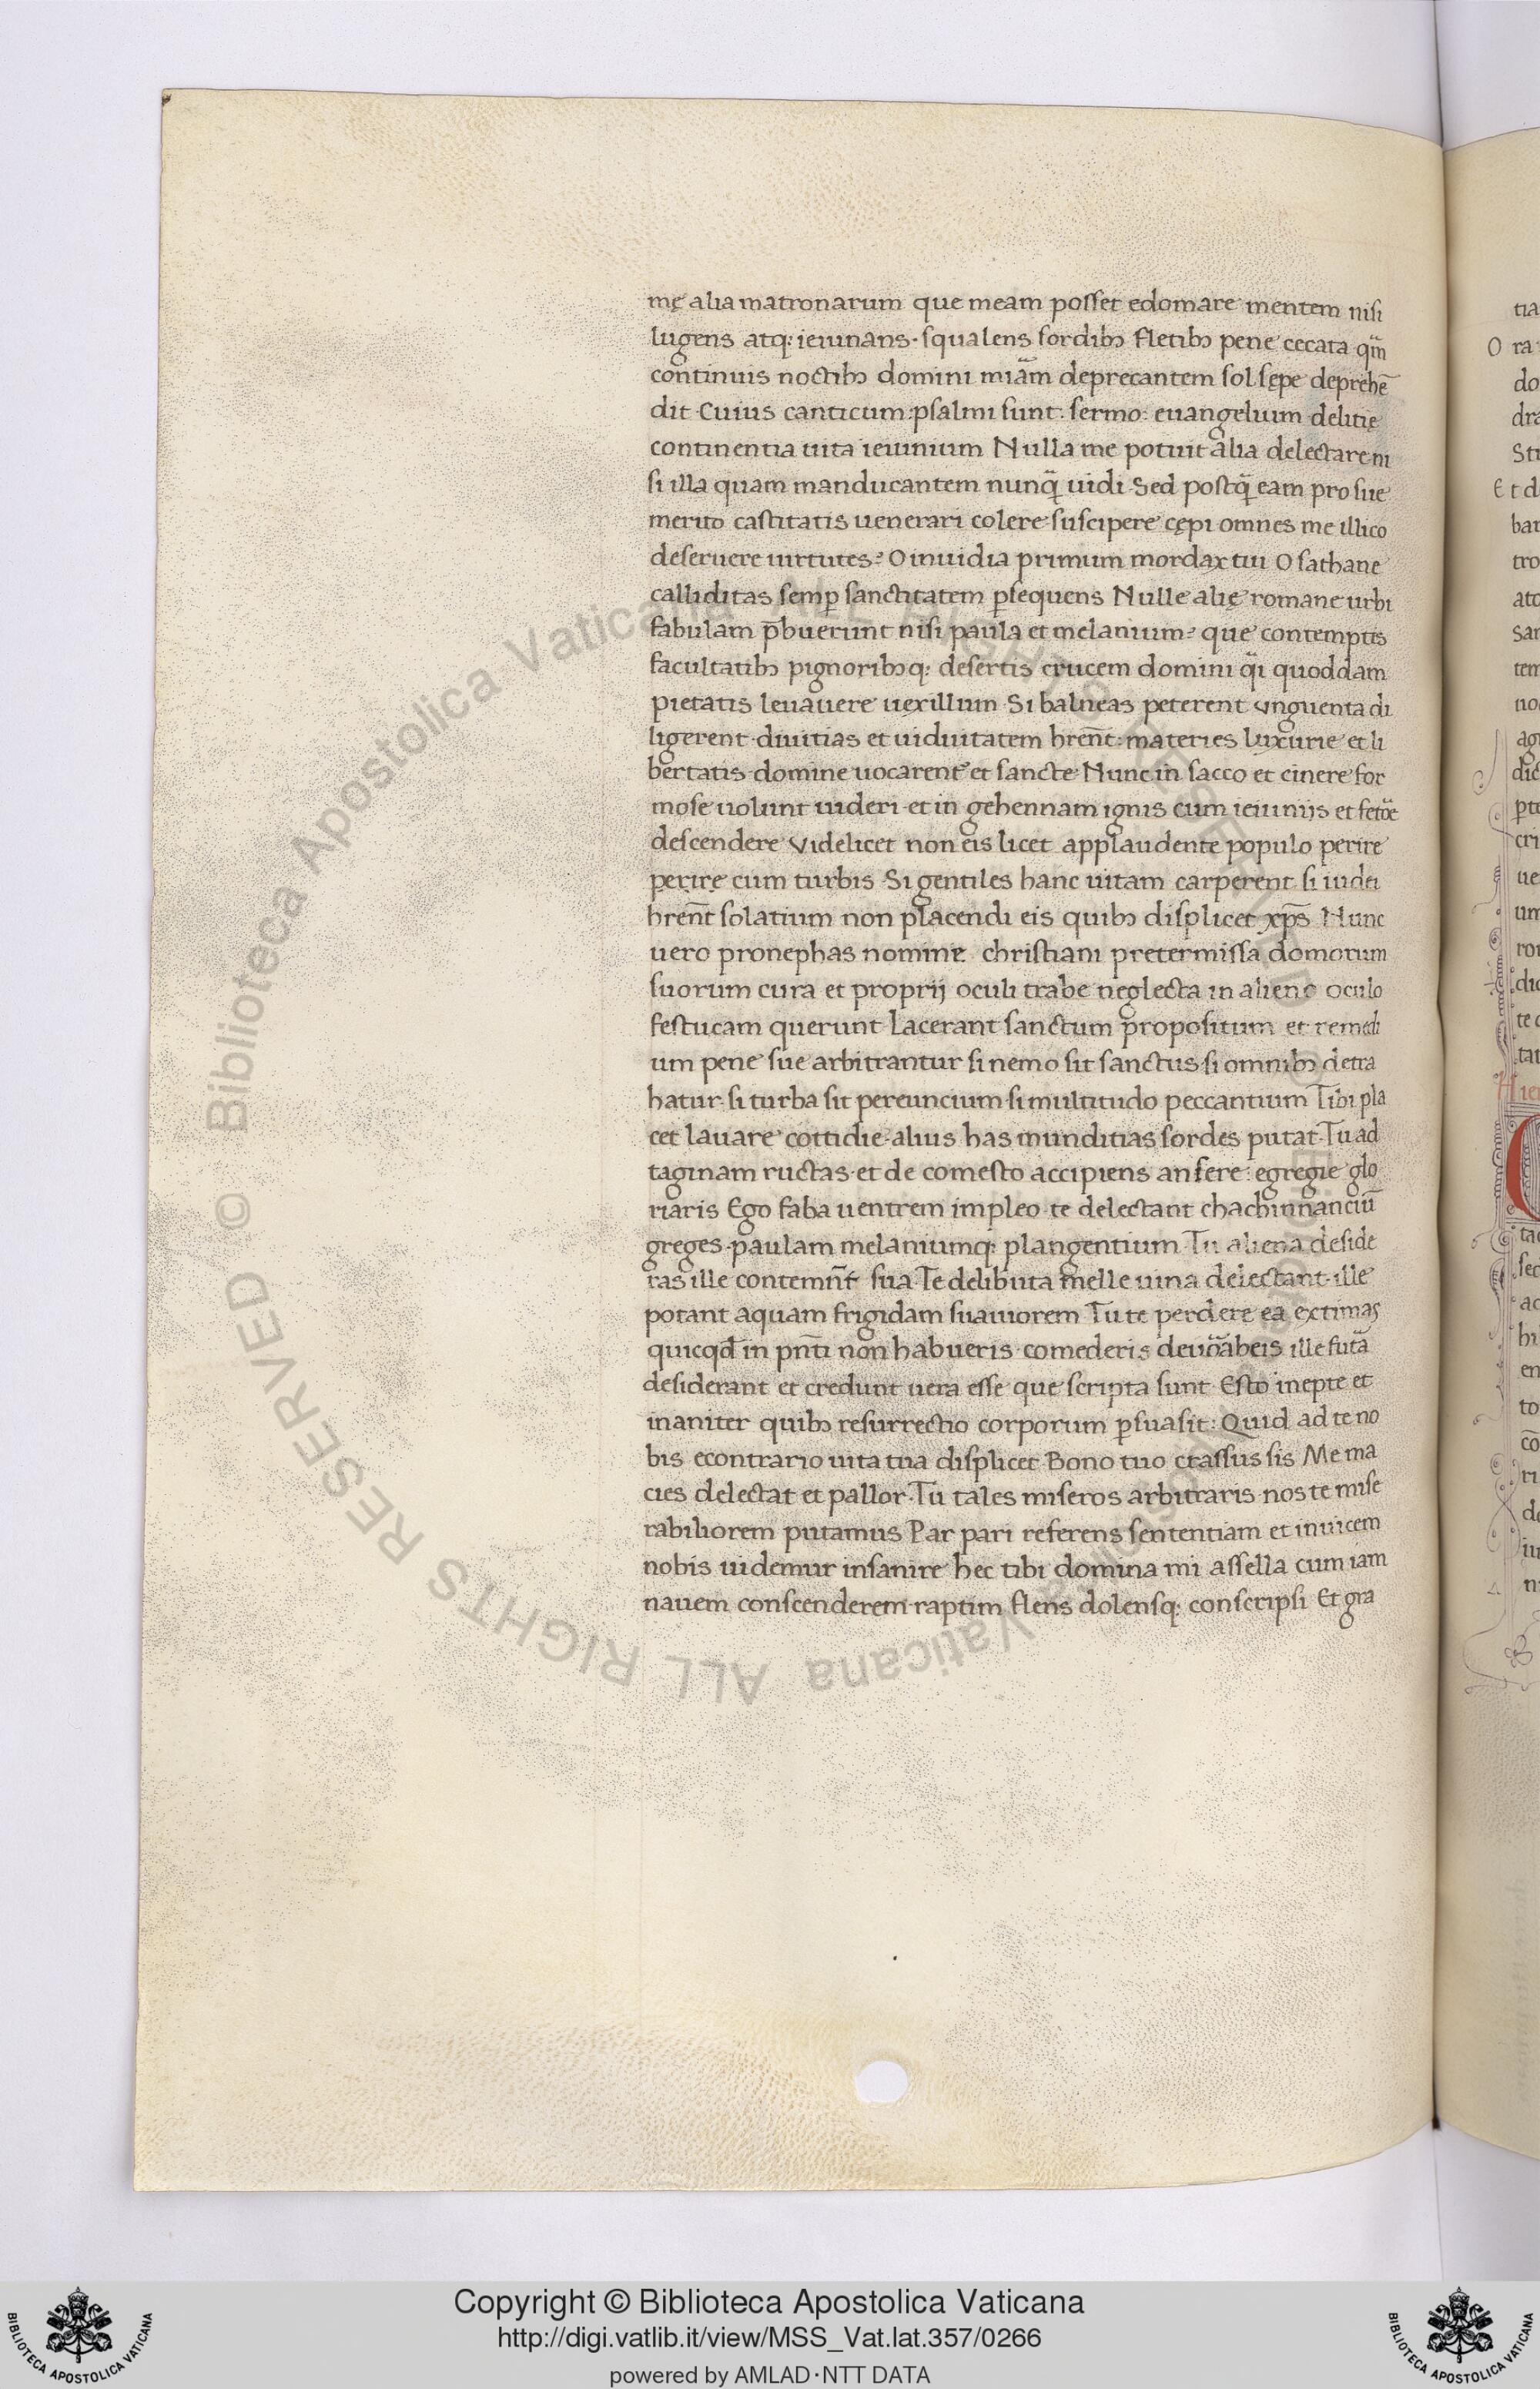 mę alia matronarum que meam posset edomare mentem nisi
lugens atq: ieiunans· squalens sordibꝫ fletibꝫ pene cecata qm̄
continuis noctibꝫ domini miām deprecantem sol sępe deprehē
dit· Cuius canticum: psalmi sunt: sermo: euangelium delitię
continentia uita ieiunium Nulla me potuit alia delectare ni
si illa quam manducantem nunq̄ uidi· Sed postq̄ eam pro sue
merito castitatis uenerari colere suscipere cępi omnes me illico
deseruere uirtutes? O inuidia primum mordax tui O sathane
calliditas semꝑ sanctitatem ꝑsequens Nulle alię romane urbi
fabulam p̄buerunt nisi paula et melanium? que contemptis
facultatibꝫ pignoribꝫq: desertis crucem domini q̄i quoddam
pietatis leuauere uexillum· Si balneas peterent unguenta di
ligerent· diuitias et uiduitatem hren̄t: materies luxurie et li
bertatis· domine uocarent̄ et sancte· Nunc in sacco et cinere for
mose uolunt uideri· et in gehennam ignis cum ieiunijs et fetōe
descendere Videlicet non eis licet applaudente populo perire
perire cum turbis· Si gentiles hanc uitam carperent si iudei
hren̄t solatium non placendi eis quibꝫ displicet xp̄s Nunc
uero pronephas nomine christiani pretermissa domorum
suorum cura et proprij oculi trabe neglecta in alieno oculo
festucam querunt Lacerant sanctum propositum et remedi
um pene sue arbitrantur si nemo sit sanctus· si omnibꝫ detra
hatur· si turba sit pereuncium· si multitudo peccantium Tibi pla
cet lauare cottidie· alius has munditias sordes putat· Tu ad
taginam ructas· et de comesto accipiens ansere: egregie glo
riaris Ego faba uentrem impleo· te delectant chachinnanciū
greges· paulam melaniumq: plangentium· Tu aliena deside
ras ille contemn̄t sua· Te delibuta melle uina delectant· ille
potant aquam frigidam suauiorem Tu te perdere ea extimas
quicqd̄ in pn̄ti non habueris· comederis deuōābeis ille futā
desiderant et credunt uera esse que scripta sunt· Esto inepte et
inaniter quibꝫ resurrectio corporum ꝑsuasit: Quid ad te no
bis econtrario uita tua displicet· Bono tuo crassus sis Me ma
cies delectat et pallor· Tu tales miseros arbitraris· nos te mise
rabiliorem putamus Par pari referens sententiam et inuicem
nobis uidemur insanire hec tibi domina mi assella cum iam
nauem conscenderem· raptim flens dolensq: conscripsi Et gra
© Biblioteca Apostolica Vaticana ALL RIGHTS RESERVED © Biblioteca Apostolica Vaticana ALL RIGHTS RESERVED
Copyright © Biblioteca Apostolica Vaticana
http://digi.vatlib.it/view/MSS_Vat.lat.357/0266
powered by AMLAD·NTT DATA
BIBLIOTECA APOSTOLICA VATICANA
BIBLIOTECA APOSTOLICA VATICANA